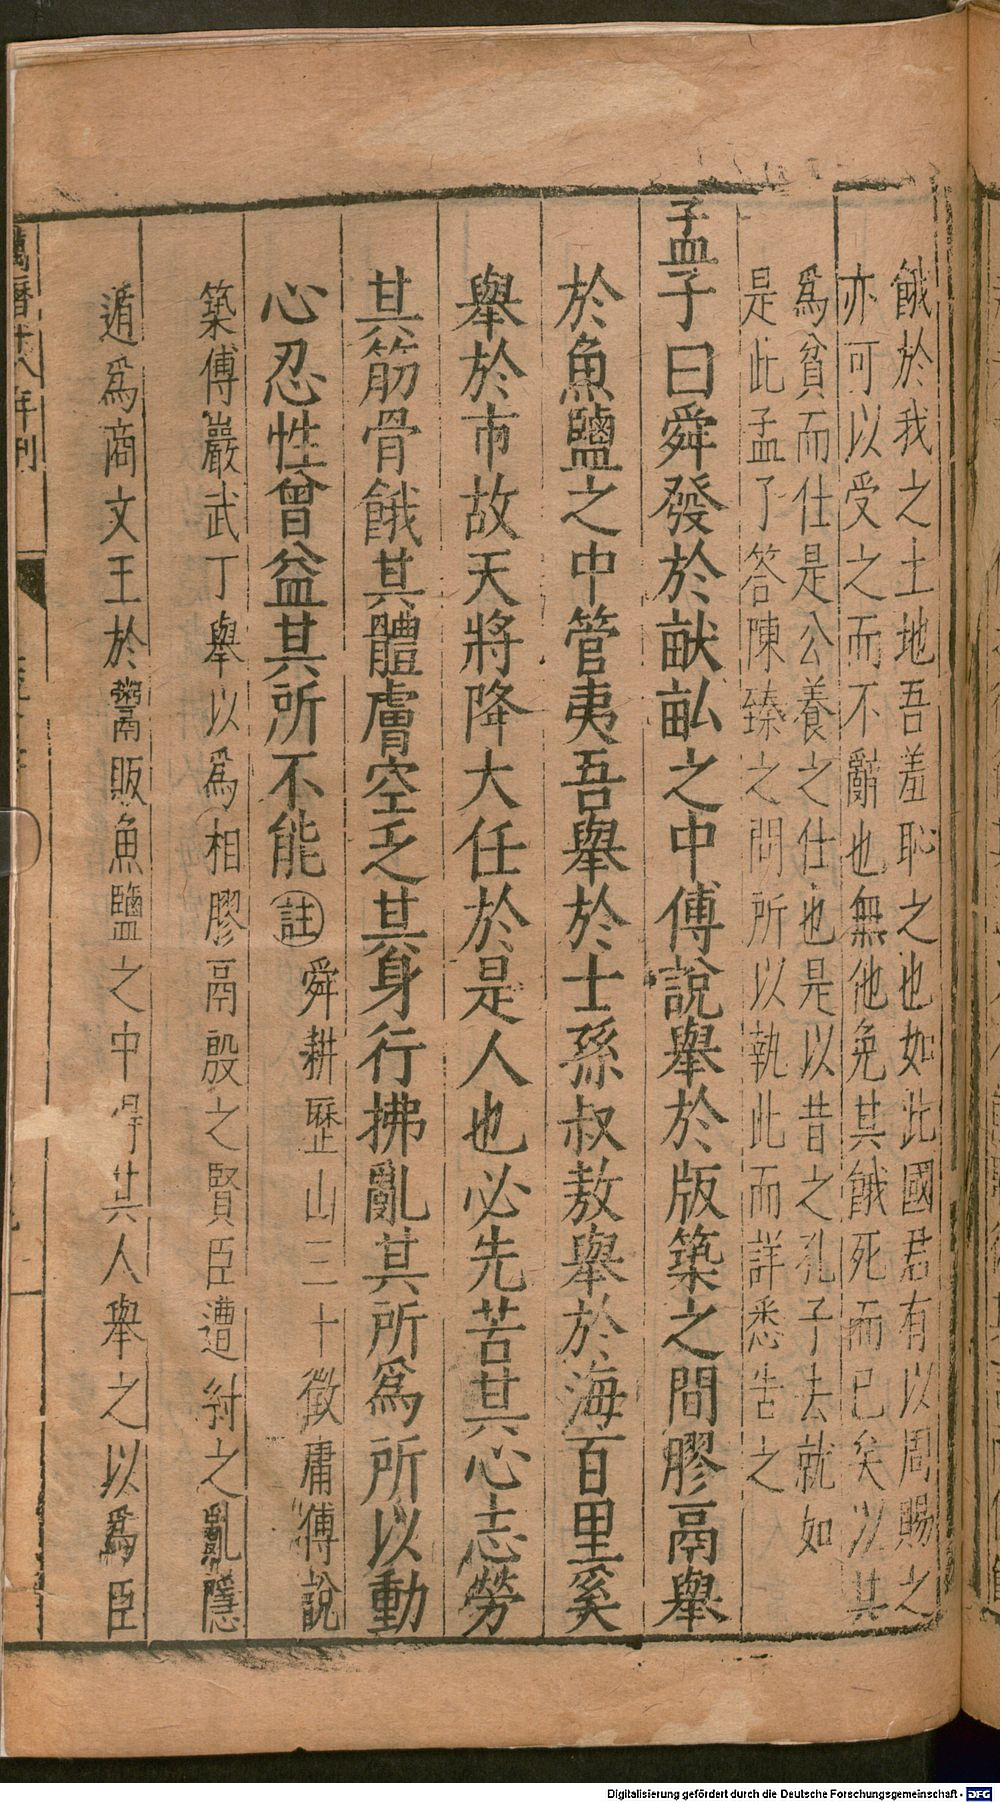 餓於我之土地吾羞恥之也如此國君有以周賜之
亦可以受之而不辭也無他免其餓死而已矣以其
為貧而仕是公養之仕也是以昔之孔子去就如
是此孟子答陳臻之問所以執此而詳悉告之
孟子曰舜發於畎畝之中傅說舉於版築之間膠鬲舉
於魚鹽之中管夷吾舉於士孫叔敖舉於海百里奚
舉於市故天將降大任於是人也必先苦其心志勞
其筋骨餓其體膚空乏其身行拂亂其所為所以動
心忍性曾益其所不能 註 舜耕歷山三十徵庸傅說
築傅巖武丁舉以為相膠鬲殷之賢臣遭紂之亂隱
遁為商文王於鬻販魚鹽之中得其人舉之以為臣
萬曆廿八年刊
Digitalisierung gefördert durch die Deutsche Forschungsgemeinschaft - DFG